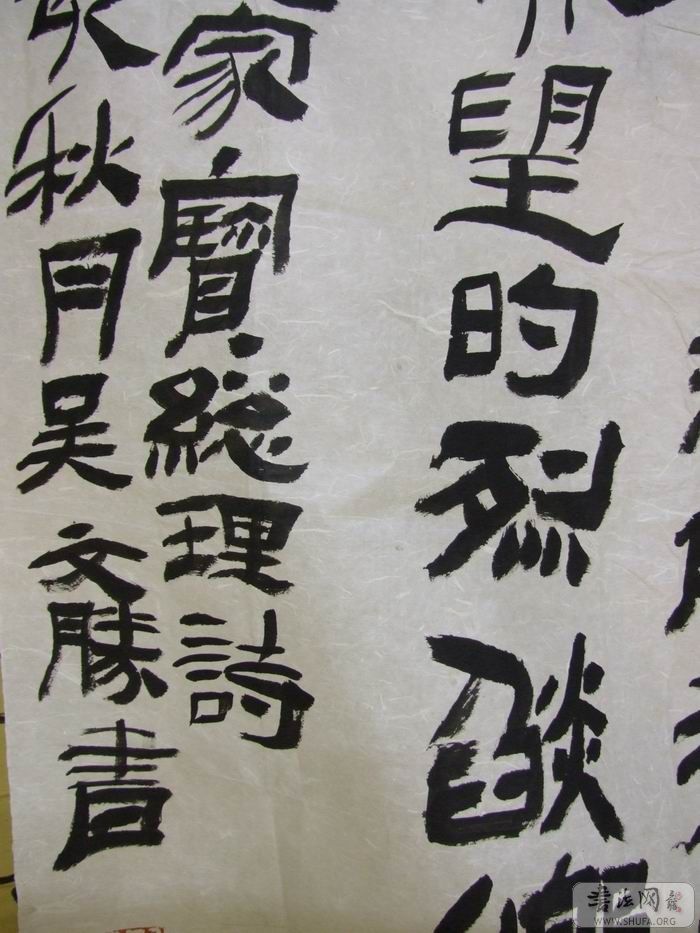 望的烈燄
家寶総理詩
秋月吴文勝書
書法网
WWW.SHUFA.ORG